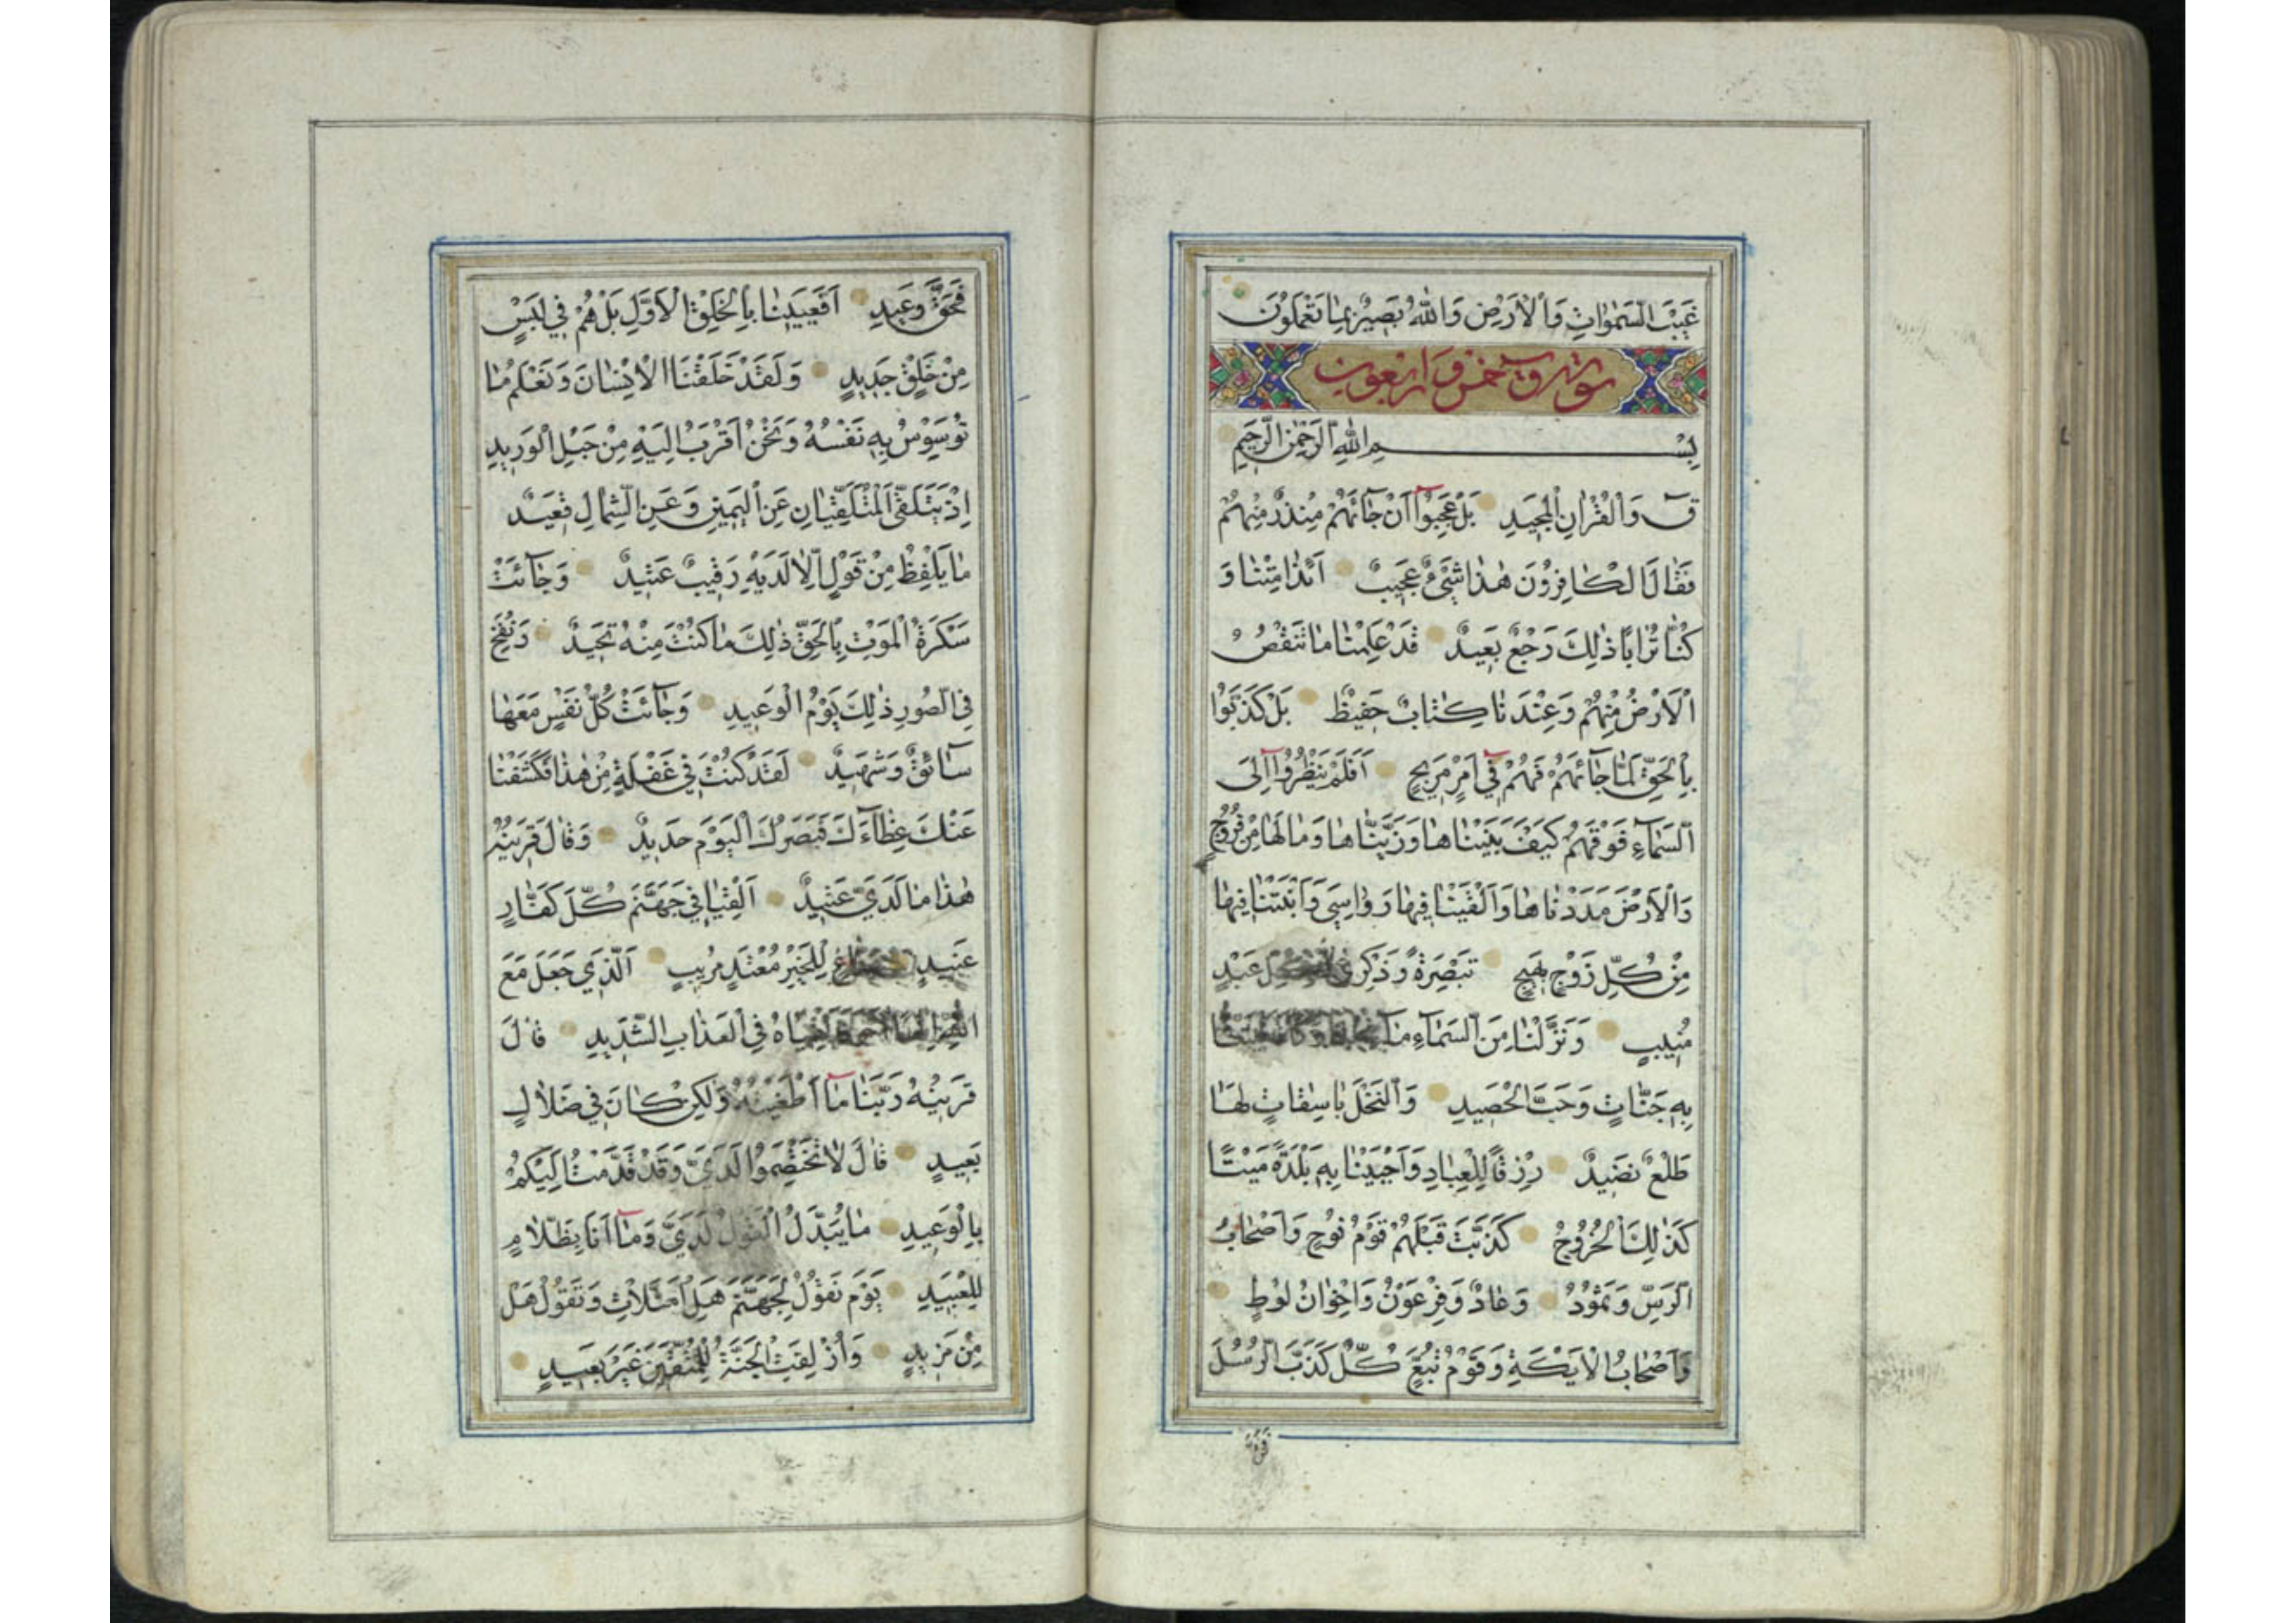 غَيْبَ السَّمٰوَاتِ وَالْاَرْضِ وَاللّٰهُ بَصِيرٌ بِمَا تَعْمَلُونَ
سورة ق خمس واربعون
بِسْمِ اللّٰهِ الرَّحْمٰنِ الرَّحِيمِ
قٓ وَالْقُرْاٰنِ الْمَجِيدِ بَلْ عَجِبُوٓا اَنْ جَآئَهُمْ مُنْذِرٌ مِنْهُمْ
فَقَالَ الْكَافِرُونَ هٰذَا شَيْءٌ عَجِيبٌ اَئِذَا مِتْنَا وَ
كُنَّا تُرَابًا ذٰلِكَ رَجْعٌ بَعِيدٌ قَدْ عَلِمْنَا مَا تَنْقُصُ
الْاَرْضُ مِنْهُمْ وَعِنْدَنَا كِتَابٌ حَفِيظٌ بَلْ كَذَّبُوا
بِالْحَقِّ لَمَّا جَآئَهُمْ فَهُمْ فِٓي اَمْرٍ مَرِيجٍ اَفَلَمْ يَنْظُرُوٓا اِلَى
السَّمَآءِ فَوْقَهُمْ كَيْفَ بَنَيْنَاهَا وَزَيَّنَّاهَا وَمَا لَهَا مِنْ فُرُوجٍ
وَالْاَرْضَ مَدَدْنَاهَا وَاَلْقَيْنَا فِيهَا رَوَاسِيَ وَاَنْبَتْنَا فِيهَا
مِنْ كُلِّ زَوْجٍ بَهِيجٍ تَبْصِرَةً وَذِكْرٰى لِكُلِّ عَبْدٍ
مُنِيبٍ وَنَزَّلْنَا مِنَ السَّمَآءِ مَآءً
بِهِ جَنَّاتٍ وَحَبَّ الْحَصِيدِ وَالنَّخْلَ بَاسِقَاتٍ لَهَا
طَلْعٌ نَضِيدٌ رِزْقًا لِلْعِبَادِ وَاَحْيَيْنَا بِهِ بَلْدَةً مَيْتًا
كَذٰلِكَ الْخُرُوجُ كَذَّبَتْ قَبْلَهُمْ قَوْمُ نُوحٍ وَاَصْحَابُ
الرَّسِّ وَثَمُودُ وَعَادٌ وَفِرْعَوْنُ وَاِخْوَانُ لُوطٍ
وَاَصْحَابُ الْاَيْكَةِ وَقَوْمُ تُبَّعٍ كُلٌّ كَذَّبَ الرُّسُلَ
فَحَقَّ وَعِيدِ اَفَعَيِينَا بِالْخَلْقِ الْاَوَّلِ بَلْ هُمْ فِي لَبْسٍ
مِنْ خَلْقٍ جَدِيدٍ وَلَقَدْ خَلَقْنَا الْاِنْسَانَ وَنَعْلَمُ مَا
تُوَسْوِسُ بِهِ نَفْسُهُ وَنَحْنُ اَقْرَبُ اِلَيْهِ مِنْ حَبْلِ الْوَرِيدِ
اِذْ يَتَلَقَّى الْمُتَلَقِّيَانِ عَنِ الْيَمِينِ وَعَنِ الشِّمَالِ قَعِيدٌ
مَا يَلْفِظُ مِنْ قَوْلٍ اِلَّا لَدَيْهِ رَقِيبٌ عَتِيدٌ وَجَآئَتْ
سَكْرَةُ الْمَوْتِ بِالْحَقِّ ذٰلِكَ مَا كُنْتَ مِنْهُ تَحِيدُ وَنُفِخَ
فِي الصُّورِ ذٰلِكَ يَوْمُ الْوَعِيدِ وَجَآئَتْ كُلُّ نَفْسٍ مَعَهَا
سَآئِقٌ وَشَهِيدٌ لَقَدْ كُنْتَ فِي غَفْلَةٍ مِنْ هٰذَا فَكَشَفْنَا
عَنْكَ غِطَآءَكَ فَبَصَرُكَ الْيَوْمَ حَدِيدٌ وَقَالَ قَرِينُهُ
هٰذَا مَا لَدَيَّ عَتِيدٌ اَلْقِيَا فِي جَهَنَّمَ كُلَّ كَفَّارٍ
عَنِيدٍ مَنَّاعٍ لِلْخَيْرِ مُعْتَدٍ مُرِيبٍ الَّذِي جَعَلَ مَعَ
اللّٰهِ اِلٰهًا فِي الْعَذَابِ الشَّدِيدِ قَالَ
قَرِينُهُ رَبَّنَا مَآ اَطْغَيْتُهُ وَلٰكِنْ كَانَ فِي ضَلَالٍ
بَعِيدٍ قَالَ لَا تَخْتَصِمُوا لَدَيَّ وَقَدْ قَدَّمْتُ اِلَيْكُمْ
بِالْوَعِيدِ مَا يُبَدَّلُ الْقَوْلُ لَدَيَّ وَمَآ اَنَا بِظَلَّامٍ
لِلْعَبِيدِ يَوْمَ نَقُولُ لِجَهَنَّمَ هَلِ امْتَلَأْتِ وَتَقُولُ هَلْ
مِنْ مَزِيدٍ وَاُزْلِفَتِ الْجَنَّةُ لِلْمُتَّقِينَ غَيْرَ بَعِيدٍ